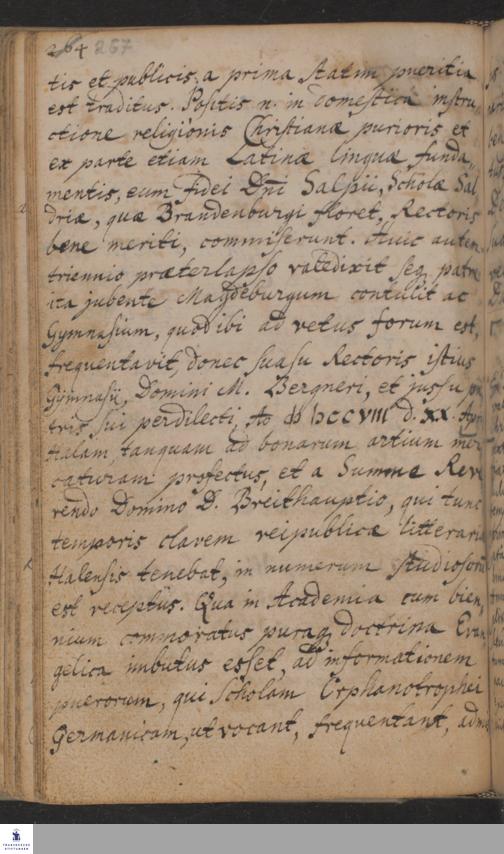 264 267
tis et publicis, a prima statim pueritia
est traditus. Positis n. in domestica instru,
ctione religionis Christianæ purioris et
ex parte etiam Latinæ linguæ funda,
mentis, eum Fidei Dni Salpii, Scholæ Sal
driæ, quæ Brandenburgi floret, Rectoris
bene meriti, commiserunt. Huic autem
triennio præterlapso valedixit seq patre
ita jubente Magdeburgum contulit ac
Gymnasium, quod ibi ad vetus forum est,
frequentavit, donec suasu Rectoris istius
Gymnasii, Domini M. Bergneri, et jussu pa
tris sui perdilecti, Ao d. XX. Apr
Halam tanquam ad bonarum artium mer
caturam profectus, et a Summe Reve
rendo Domino D. Breithauptio, qui tunc
temporis clavem reipublicæ litterariæ
Halensis tenebat, in numerum studiosorum
est receptus. Qua in Academia cum bien,
nium commoratus puraq doctrina Evan
gelica imbutus esset, ad informationem
puerorum, qui Scholam Orphanotrophei
Germanicam, ut vocant, frequentant, admo
FRANCKESCHE
STIFTUNGEN